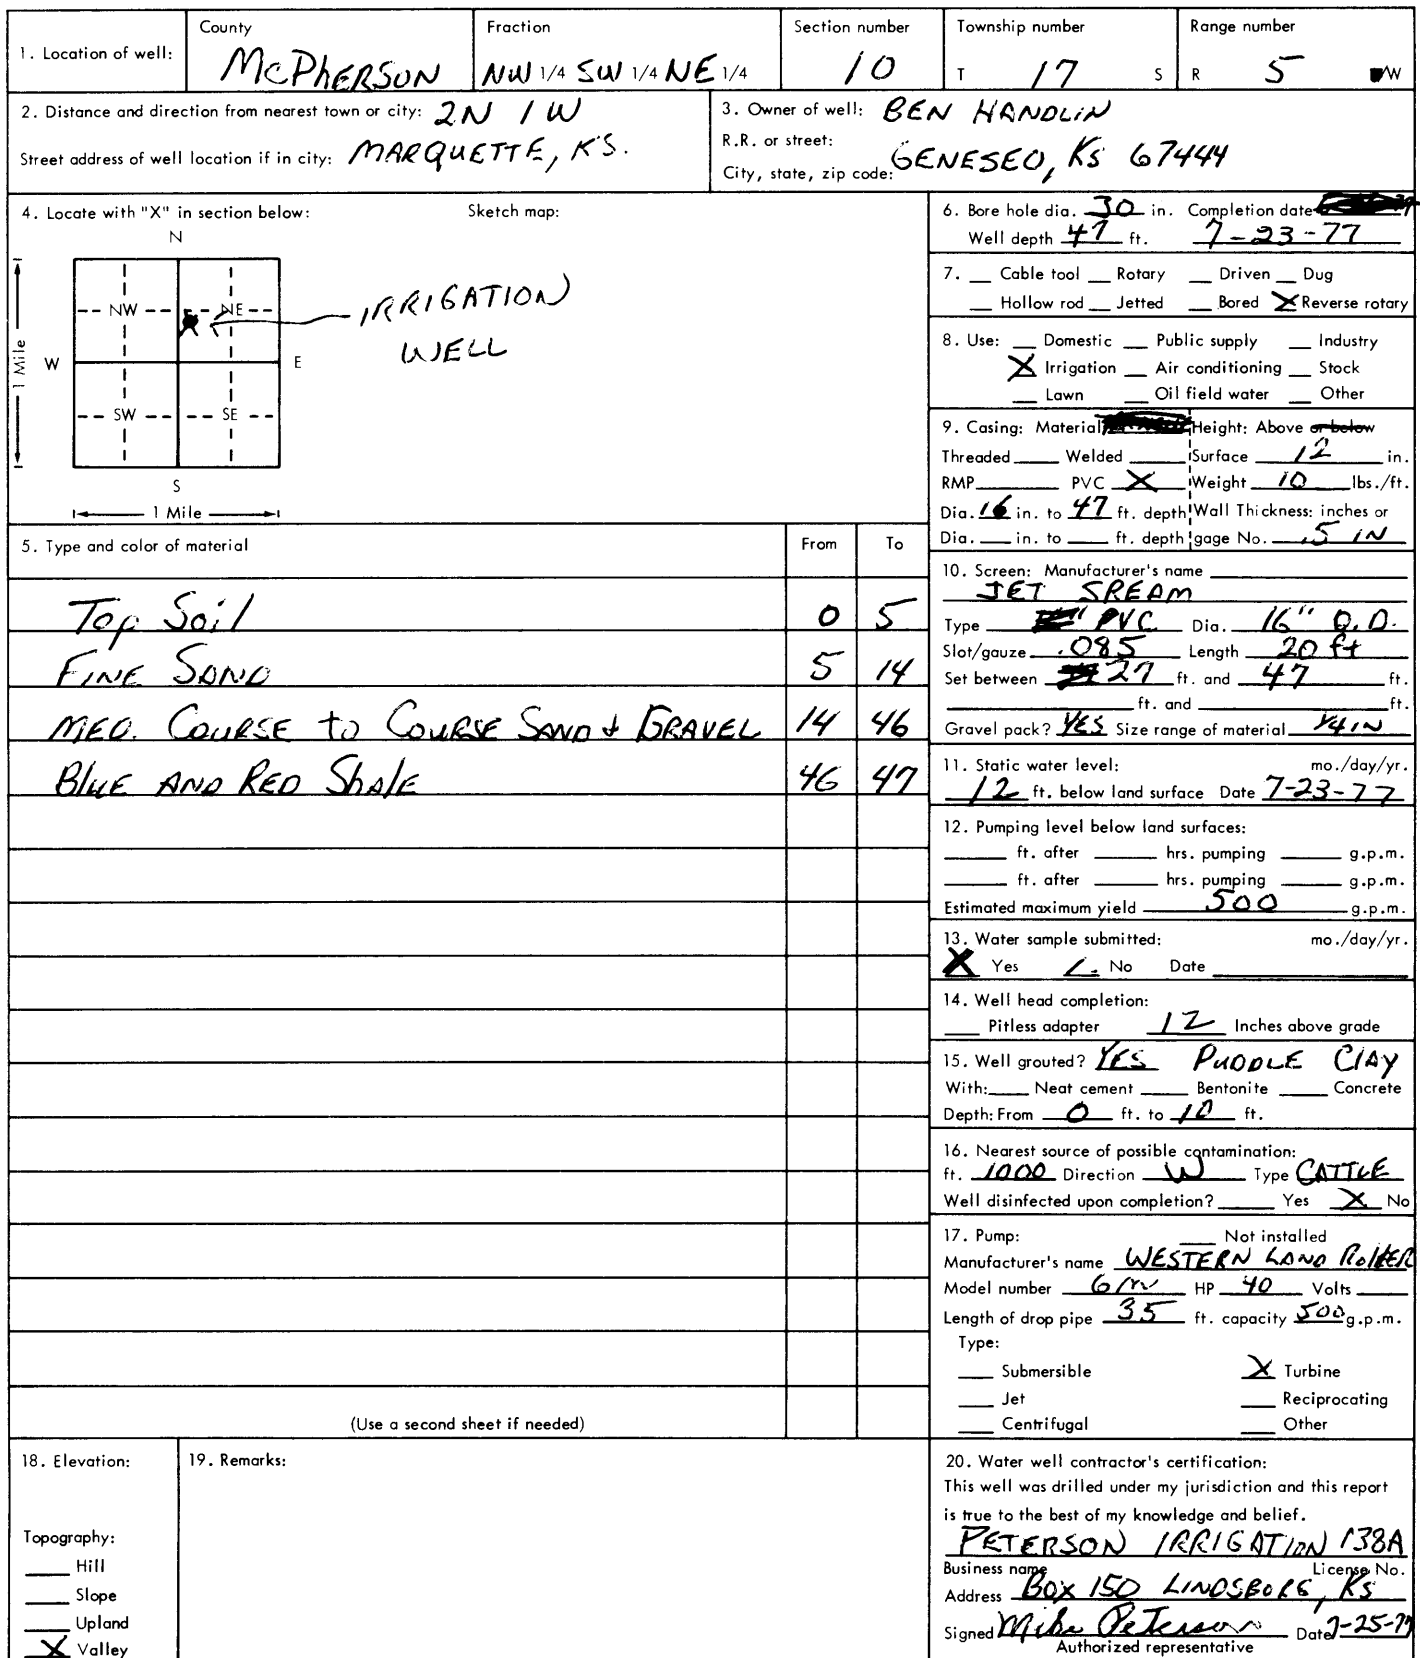 1. Location of well:
County
McPHERSON
Fraction
NW 1/4 SW 1/4 NE 1/4
Section number
10
Township number
T 17 S
Range number
R 5 W
2. Distance and direction from nearest town or city: 2N 1W
Street address of well location if in city: MARQUETTE, KS.
3. Owner of well: BEN HANDLIN
R.R. or street:
City, state, zip code: GENESEO, KS 67444
4. Locate with "X" in section below:
Sketch map:
N
NW NE
W E
SW SE
S
1 Mile
1 Mile
IRRIGATION
WELL
5. Type and color of material From To
Top Soil 0 5
FINE SAND 5 14
MED. COURSE to COURSE SAND & GRAVEL 14 46
BLUE AND RED ShAlE 46 47
(Use a second sheet if needed)
6. Bore hole dia. 30 in. Completion date
Well depth 47 ft. 7-23-77
7. __ Cable tool __ Rotary __ Driven __ Dug
__ Hollow rod __ Jetted __ Bored X Reverse rotary
8. Use: __ Domestic __ Public supply __ Industry
X Irrigation __ Air conditioning __ Stock
__ Lawn __ Oil field water __ Other
9. Casing: Material Height: Above or below
Threaded __ Welded __ Surface 12 in.
RMP __ PVC X Weight 10 lbs./ft.
Dia. 16 in. to 47 ft. depth Wall Thickness: inches or
Dia. __ in. to __ ft. depth gage No. .5 IN
10. Screen: Manufacturer's name
JET SREAM
Type PVC Dia. 16" O.D.
Slot/gauze .085 Length 20 ft
Set between 27 ft. and 47 ft.
__ ft. and __ ft.
Gravel pack? YES Size range of material 1/4 IN
11. Static water level: mo./day/yr.
12 ft. below land surface Date 7-23-77
12. Pumping level below land surfaces:
__ ft. after __ hrs. pumping __ g.p.m.
__ ft. after __ hrs. pumping __ g.p.m.
Estimated maximum yield 500 g.p.m.
13. Water sample submitted: mo./day/yr.
X Yes __ No Date __
14. Well head completion:
__ Pitless adapter 12 Inches above grade
15. Well grouted? YES PUDDLE CLAY
With: __ Neat cement __ Bentonite __ Concrete
Depth: From 0 ft. to 10 ft.
16. Nearest source of possible contamination:
ft. 1000 Direction W Type CATTLE
Well disinfected upon completion? __ Yes X No
17. Pump: __ Not installed
Manufacturer's name WESTERN LAND ROLLER
Model number HP 40 Volts __
Length of drop pipe 35 ft. capacity 500 g.p.m.
Type:
__ Submersible X Turbine
__ Jet __ Reciprocating
__ Centrifugal __ Other
18. Elevation:
Topography:
__ Hill
__ Slope
__ Upland
X Valley
19. Remarks:
20. Water well contractor's certification:
This well was drilled under my jurisdiction and this report
is true to the best of my knowledge and belief.
PETERSON IRRIGATION 138A
Business name License No.
Address BOX 150 LINDSBORG, KS
Signed Mike Peterson Date 7-25-77
Authorized representative